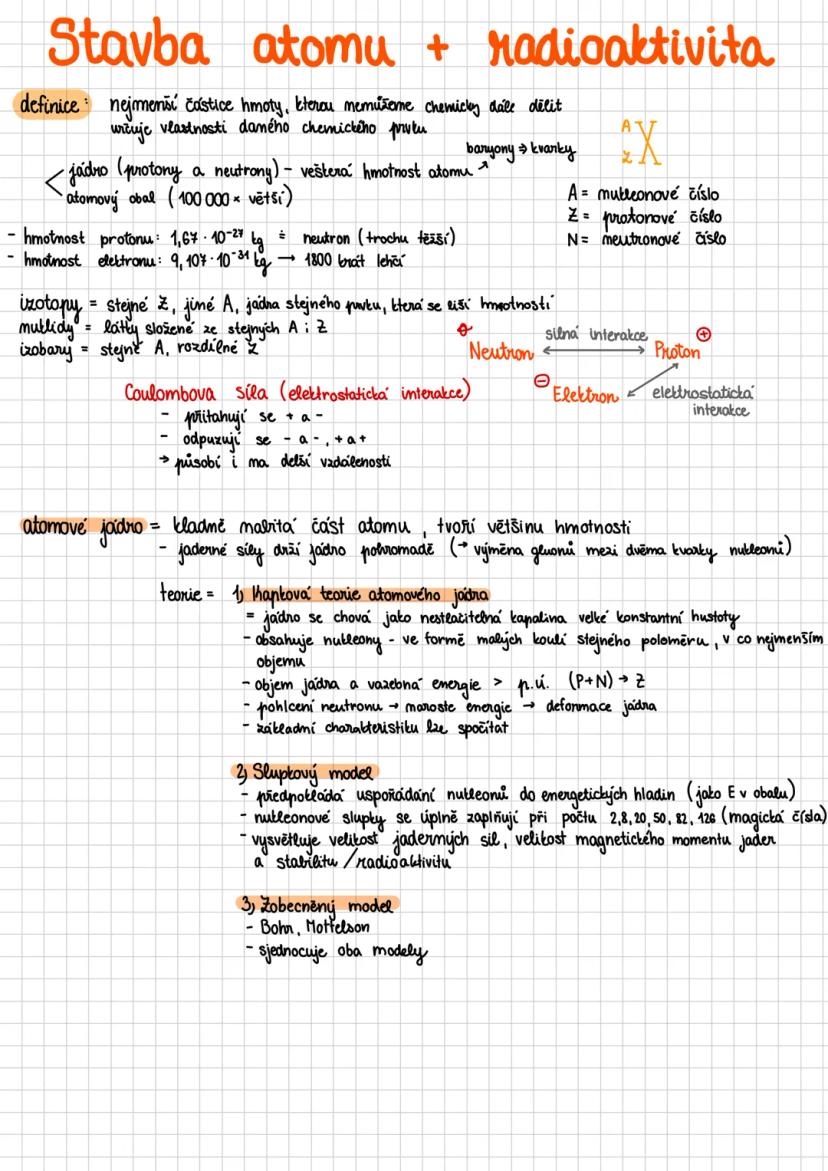 Stavba atomu + radioaktivita
definice: nejmenší částice hmoty, kterou nemůžeme chemicky dále dělit
určuje vlastnosti daného chemického prvku
baryony ⇒ kvarky
jádro (protony a neutrony) - veškerá hmotnost atomu ↗
atomový obal (100 000 × větší)
A
Z X
A = nukleonové číslo
Z = protonové číslo
N = neutronové číslo
- hmotnost protonu: 1,67 · 10⁻²⁷ kg ≐ neutron (trochu těžší)
- hmotnost elektronu: 9,107 · 10⁻³¹ kg → 1800 krát lehčí
izotopy = stejné Z, jiné A, jádra stejného prvku, která se liší hmotností
nuklidy = látky složené ze stejných A i Z
izobary = stejné A, rozdílné Z
Neutron silná interakce Proton ⊕
⊖ Elektron elektrostatická
interakce
Coulombova síla (elektrostatická interakce)
- přitahují se + a -
- odpuzují se - a -, + a +
→ působí i na delší vzdálenosti
atomové jádro = kladně nabitá část atomu, tvoří většinu hmotnosti
- jaderné síly drží jádro pohromadě (→ výměna gluonů mezi dvěma kvarky nukleonů)
teorie = 1) Kapková teorie atomového jádra
= jádro se chová jako nestlačitelná kapalina velké konstantní hustoty
- obsahuje nukleony - ve formě malých koulí stejného poloměru, v co nejmenším
objemu
- objem jádra a vazebná energie > p.ú. (P+N) → Z
- pohlcení neutronu → naroste energie → deformace jádra
- základní charakteristiku lze spočítat
2) Slupkový model
- předpokládá uspořádání nukleonů do energetických hladin (jako E v obalu)
- nukleonové slupky se úplně zaplňují při počtu 2,8,20,50,82,126 (magická čísla)
- vysvětluje velikost jaderných sil, velikost magnetického momentu jader
a stabilitu /radioaktivitu
3) Zobecněný model
- Bohr, Mottelson
- sjednocuje oba modely